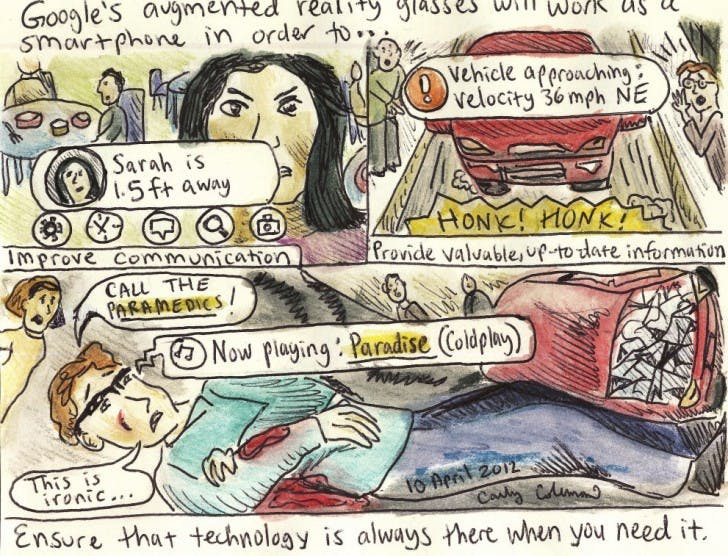 Google's augmented reality glasses will work as a
smartphone in order to..
Sarah is
1.5 ft away
Improve communication
Vehicle approaching:
velocity 36 mph NE
HONK! HONK!
Provide valuable, up-to-date information
CALL THE
PARAMEDICS!
Now playing: Paradise (Coldplay)
This is
ironic...
10 April 2012
Ensure that technology is always there when you need it.